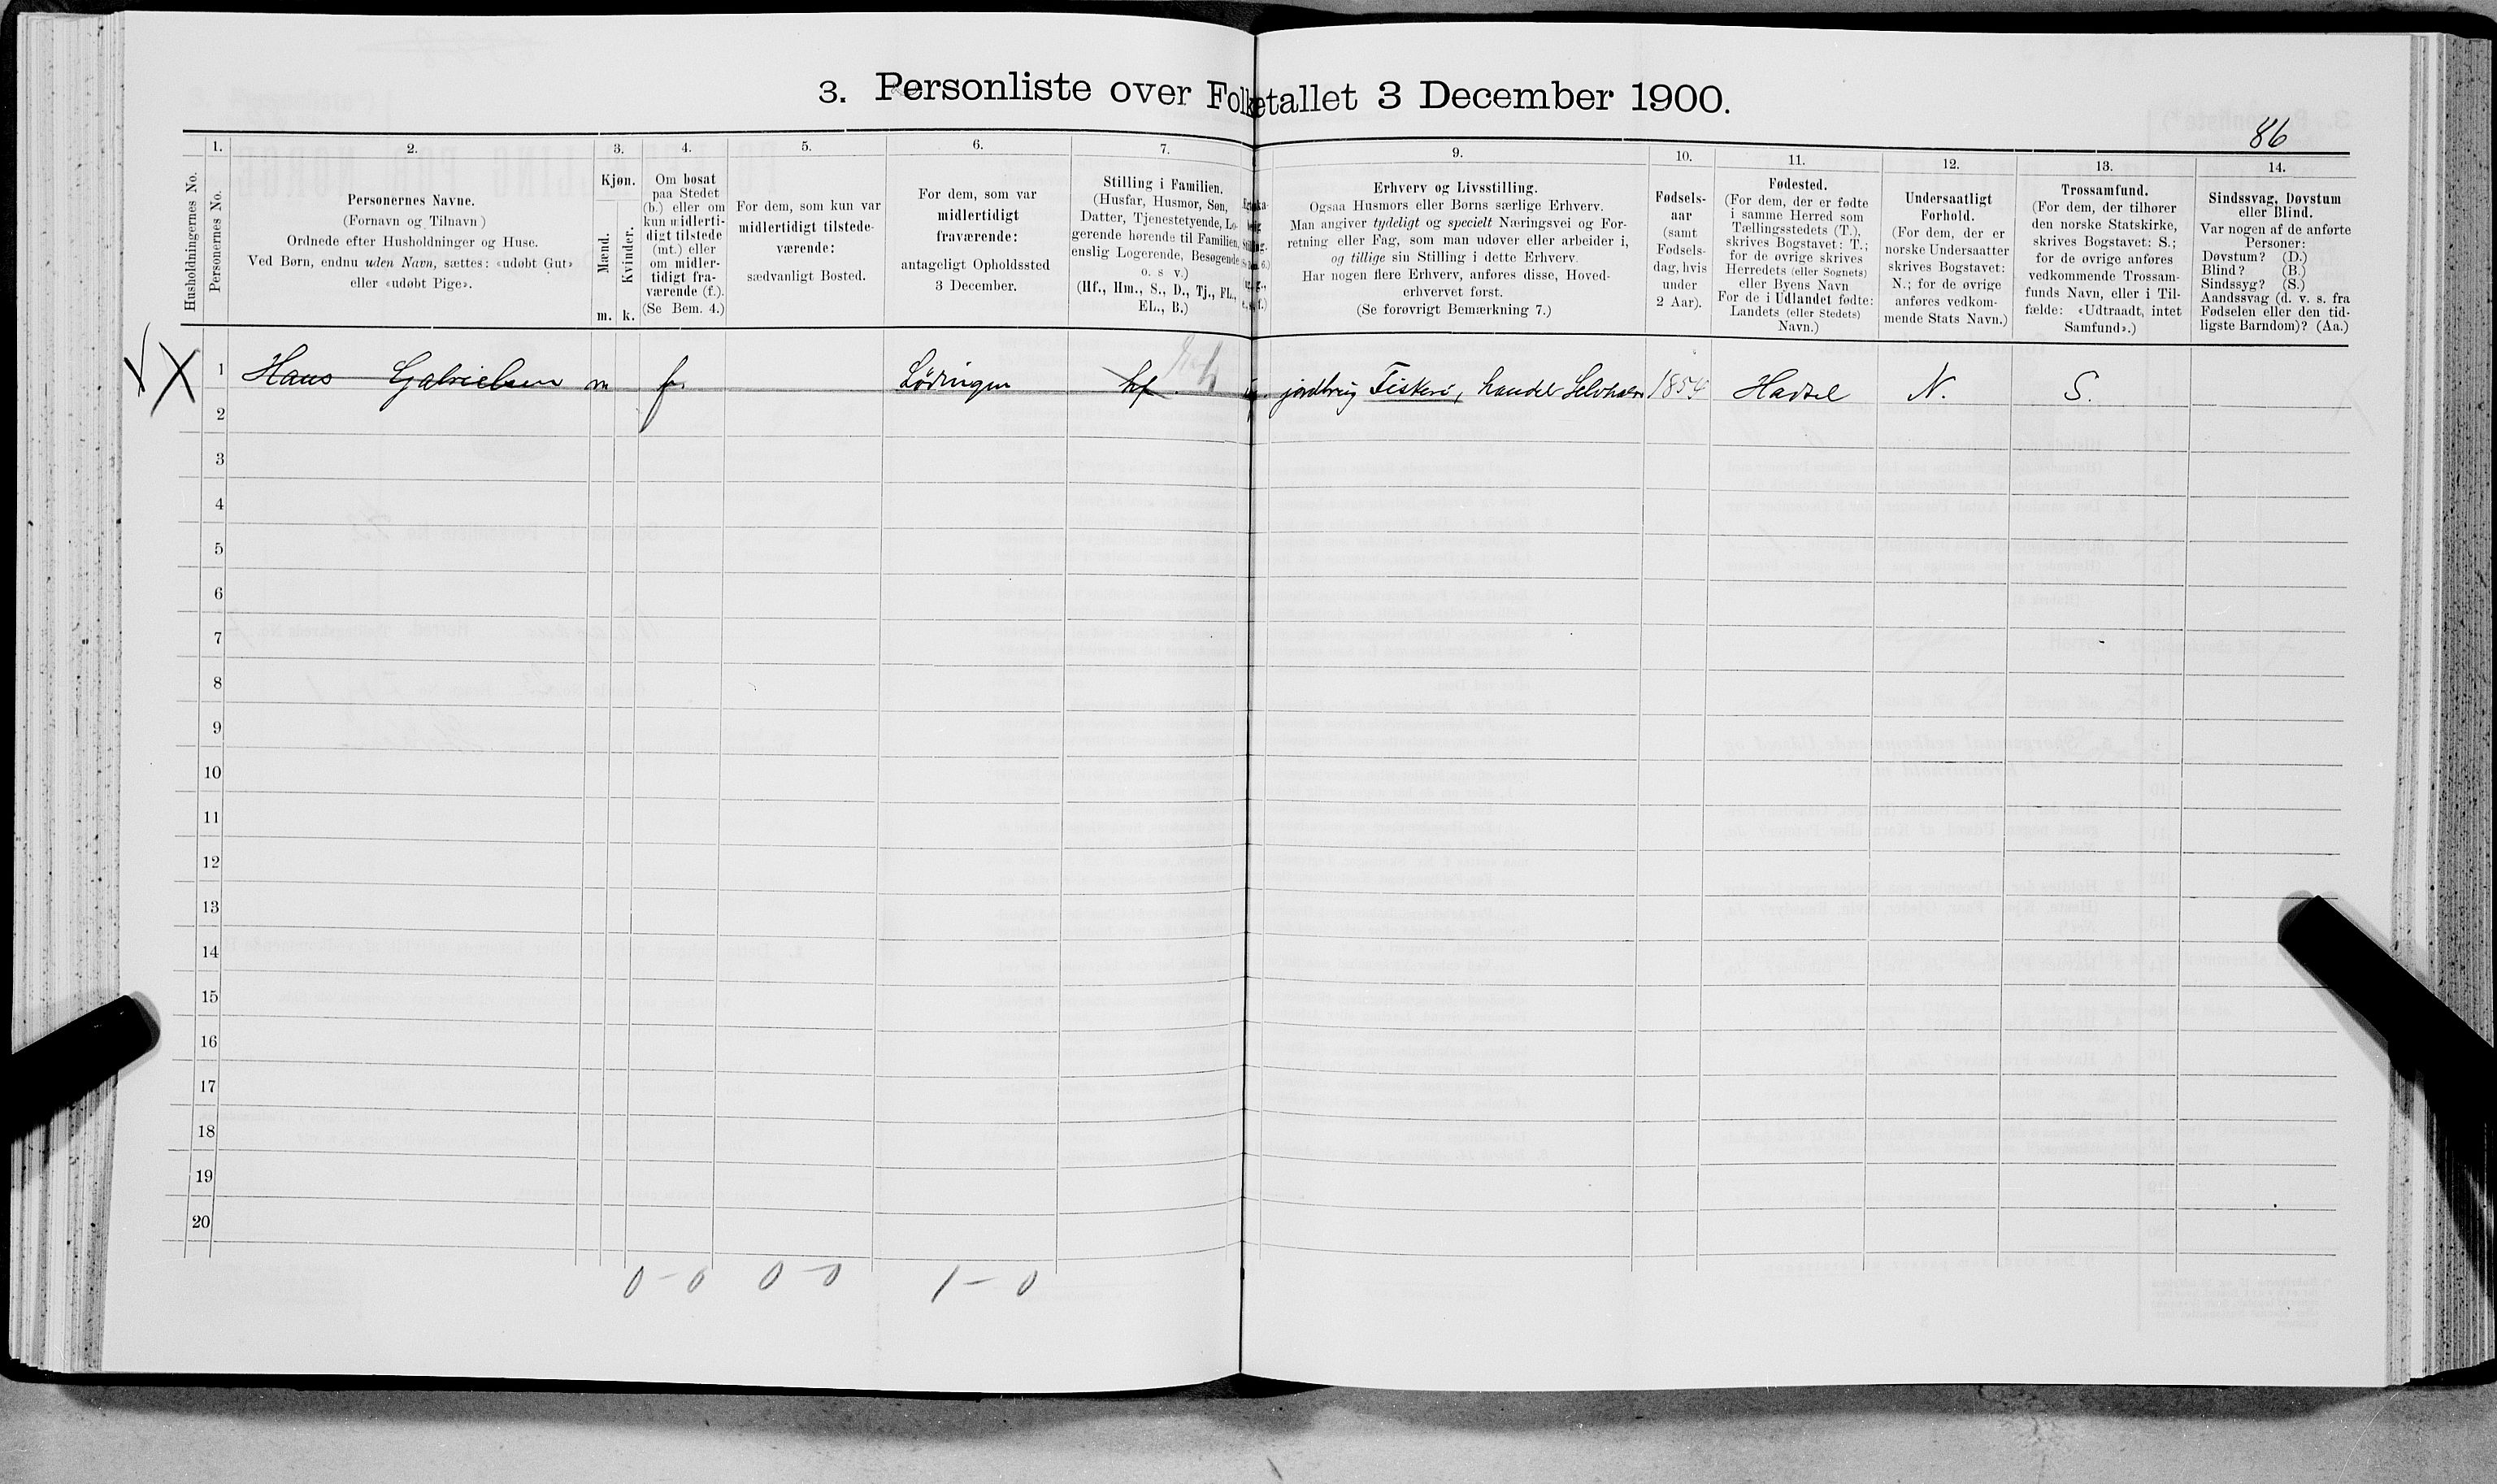 3. Personliste over Folketallet 3 December 1900.
86
1. 2. 3. 4. 5. 6. 7. 9. 10. 11. 12. 13. 14.
Husholdningernes No.
Personernes No.
Personernes Navne.
(Fornavn og Tilnavn)
Ordnede efter Husholdninger og Huse.
Ved Børn, endnu uden Navn, sættes: «udøbt Gut»
eller «udøbt Pige».
Kjøn.
Mænd.
Kvinder.
m. k.
Om bosat
paa Stedet
(b.) eller om
kun midlerti-
digt tilstede
(mt.) eller
om midler-
tidigt fra-
værende (f.).
(Se Bem. 4.)
For dem, som kun var
midlertidigt tilstede-
værende:
sædvanligt Bosted.
For dem, som var
midlertidigt
fraværende:
antageligt Opholdssted
3 December.
Stilling i Familien.
(Husfar, Husmor, Søn,
Datter, Tjenestetyende, Lo-
gerende hørende til Familien,
enslig Logerende, Besøgende
o. s v.)
(Hf., Hm., S., D., Tj., FL.,
EL., B.)
Erhverv og Livsstilling.
Ogsaa Husmors eller Børns særlige Erhverv.
Man angiver tydeligt og specielt Næringsvei og For-
retning eller Fag, som man udøver eller arbeider i,
og tillige sin Stilling i dette Erhverv.
Har nogen flere Erhverv, anføres disse, Hoved-
erhvervet først.
(Se forøvrigt Bemærkning 7.)
Fødsels-
aar
(samt
Fødsels-
dag, hvis
under
2 Aar).
Fødested.
(For dem, der er fødte
i samme Herred som
Tællingsstedets (T.),
skrives Bogstavet: T.;
for de øvrige skrives
Herredets (eller Sognets)
eller Byens Navn
For de i Udlandet fødte:
Landets (eller Stedets)
Navn.)
Undersaatligt
Forhold.
(For dem, der er
norske Undersaatter
skrives Bogstavet:
N.; for de øvrige
anføres vedkom-
mende Stats Navn.)
Trossamfund.
(For dem, der tilhører
den norske Statskirke,
skrives Bogstavet: S.;
for de øvrige anføres
vedkommende Trossam-
funds Navn, eller i Til-
fælde: «Udtraadt, intet
Samfund».)
Sindssvag, Døvstum
eller Blind.
Var nogen af de anførte
Personer:
Døvstum? (D.)
Blind? (B.)
Sindssyg? (S.)
Aandssvag (d. v. s. fra
Fødselen eller den tid-
ligste Barndom)? (Aa.)
X 1 Hans Gabrielsen m f. Lödingen hf. jordbrug Fiskeri, handel 1854 Hadsel N. S.
2
3
4
5
6
7
8
9
10
11
12
13
14
15
16
17
18
19
20
0 - 0 0 - 0 1 - 0